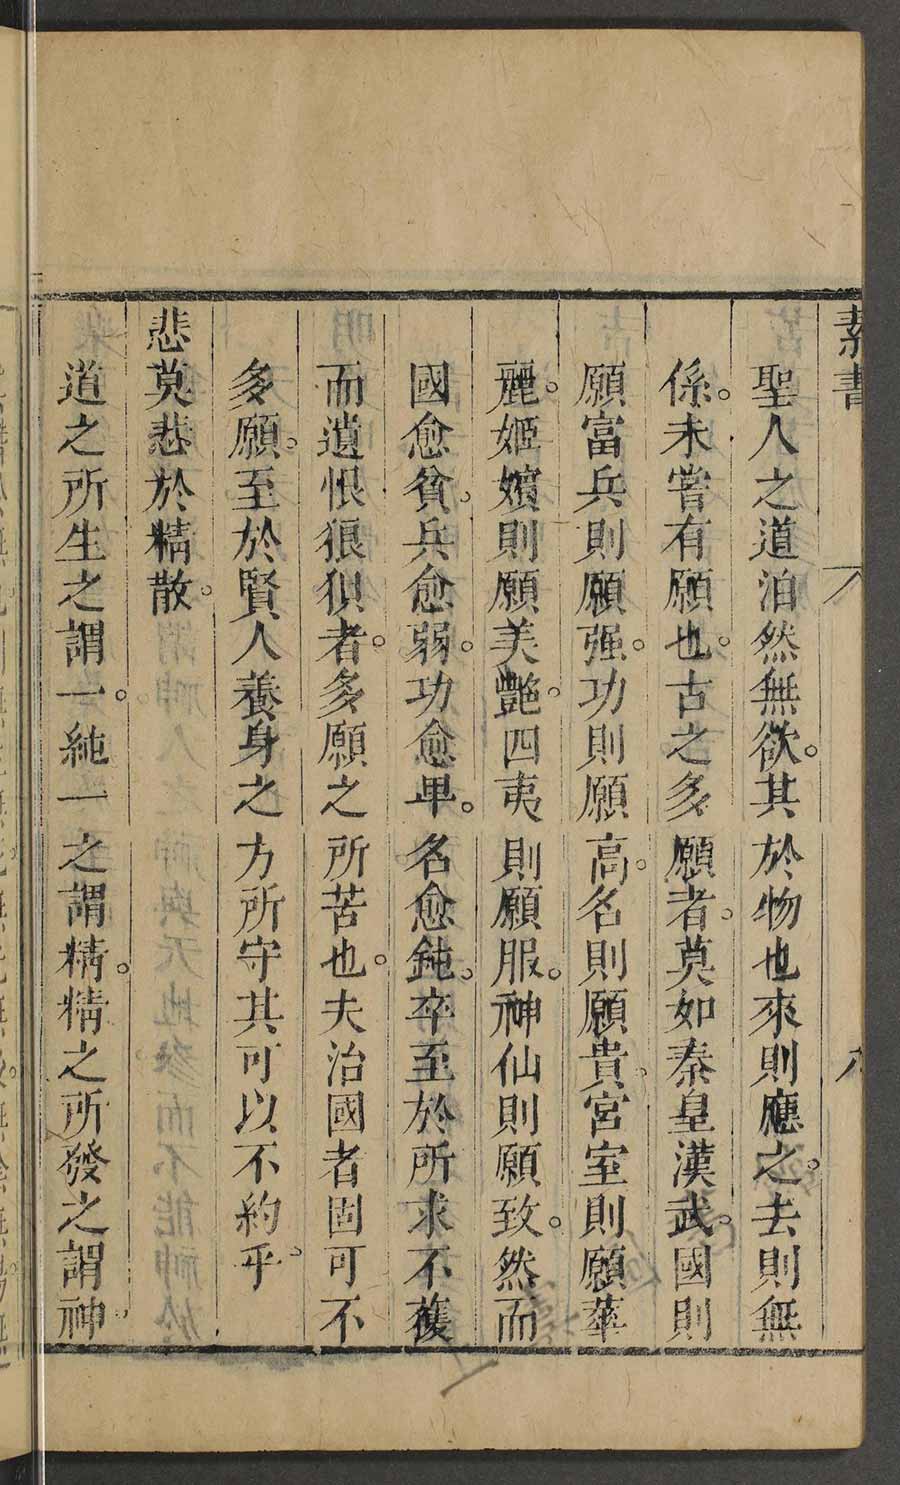 素書
八
聖人之道泊然無欲。其於物也來則應之。去則無
係。未嘗有願也。古之多願者。莫如秦皇漢武。國則
願富兵則願强。功則願高。名則願貴。宮室則願華
麗。姬嬪則願美艷。四夷則願服。神仙則願致。然而
國愈貧。兵愈弱。功愈卑。名愈鈍。卒至於所求不獲
而遺恨狼狽者。多願之所苦也。夫治國者固可不
多願。至於賢人養身之方所守其可以不約乎。
悲莫悲於精散。
道之所生之謂一。純一之謂精。精之所發之謂神。